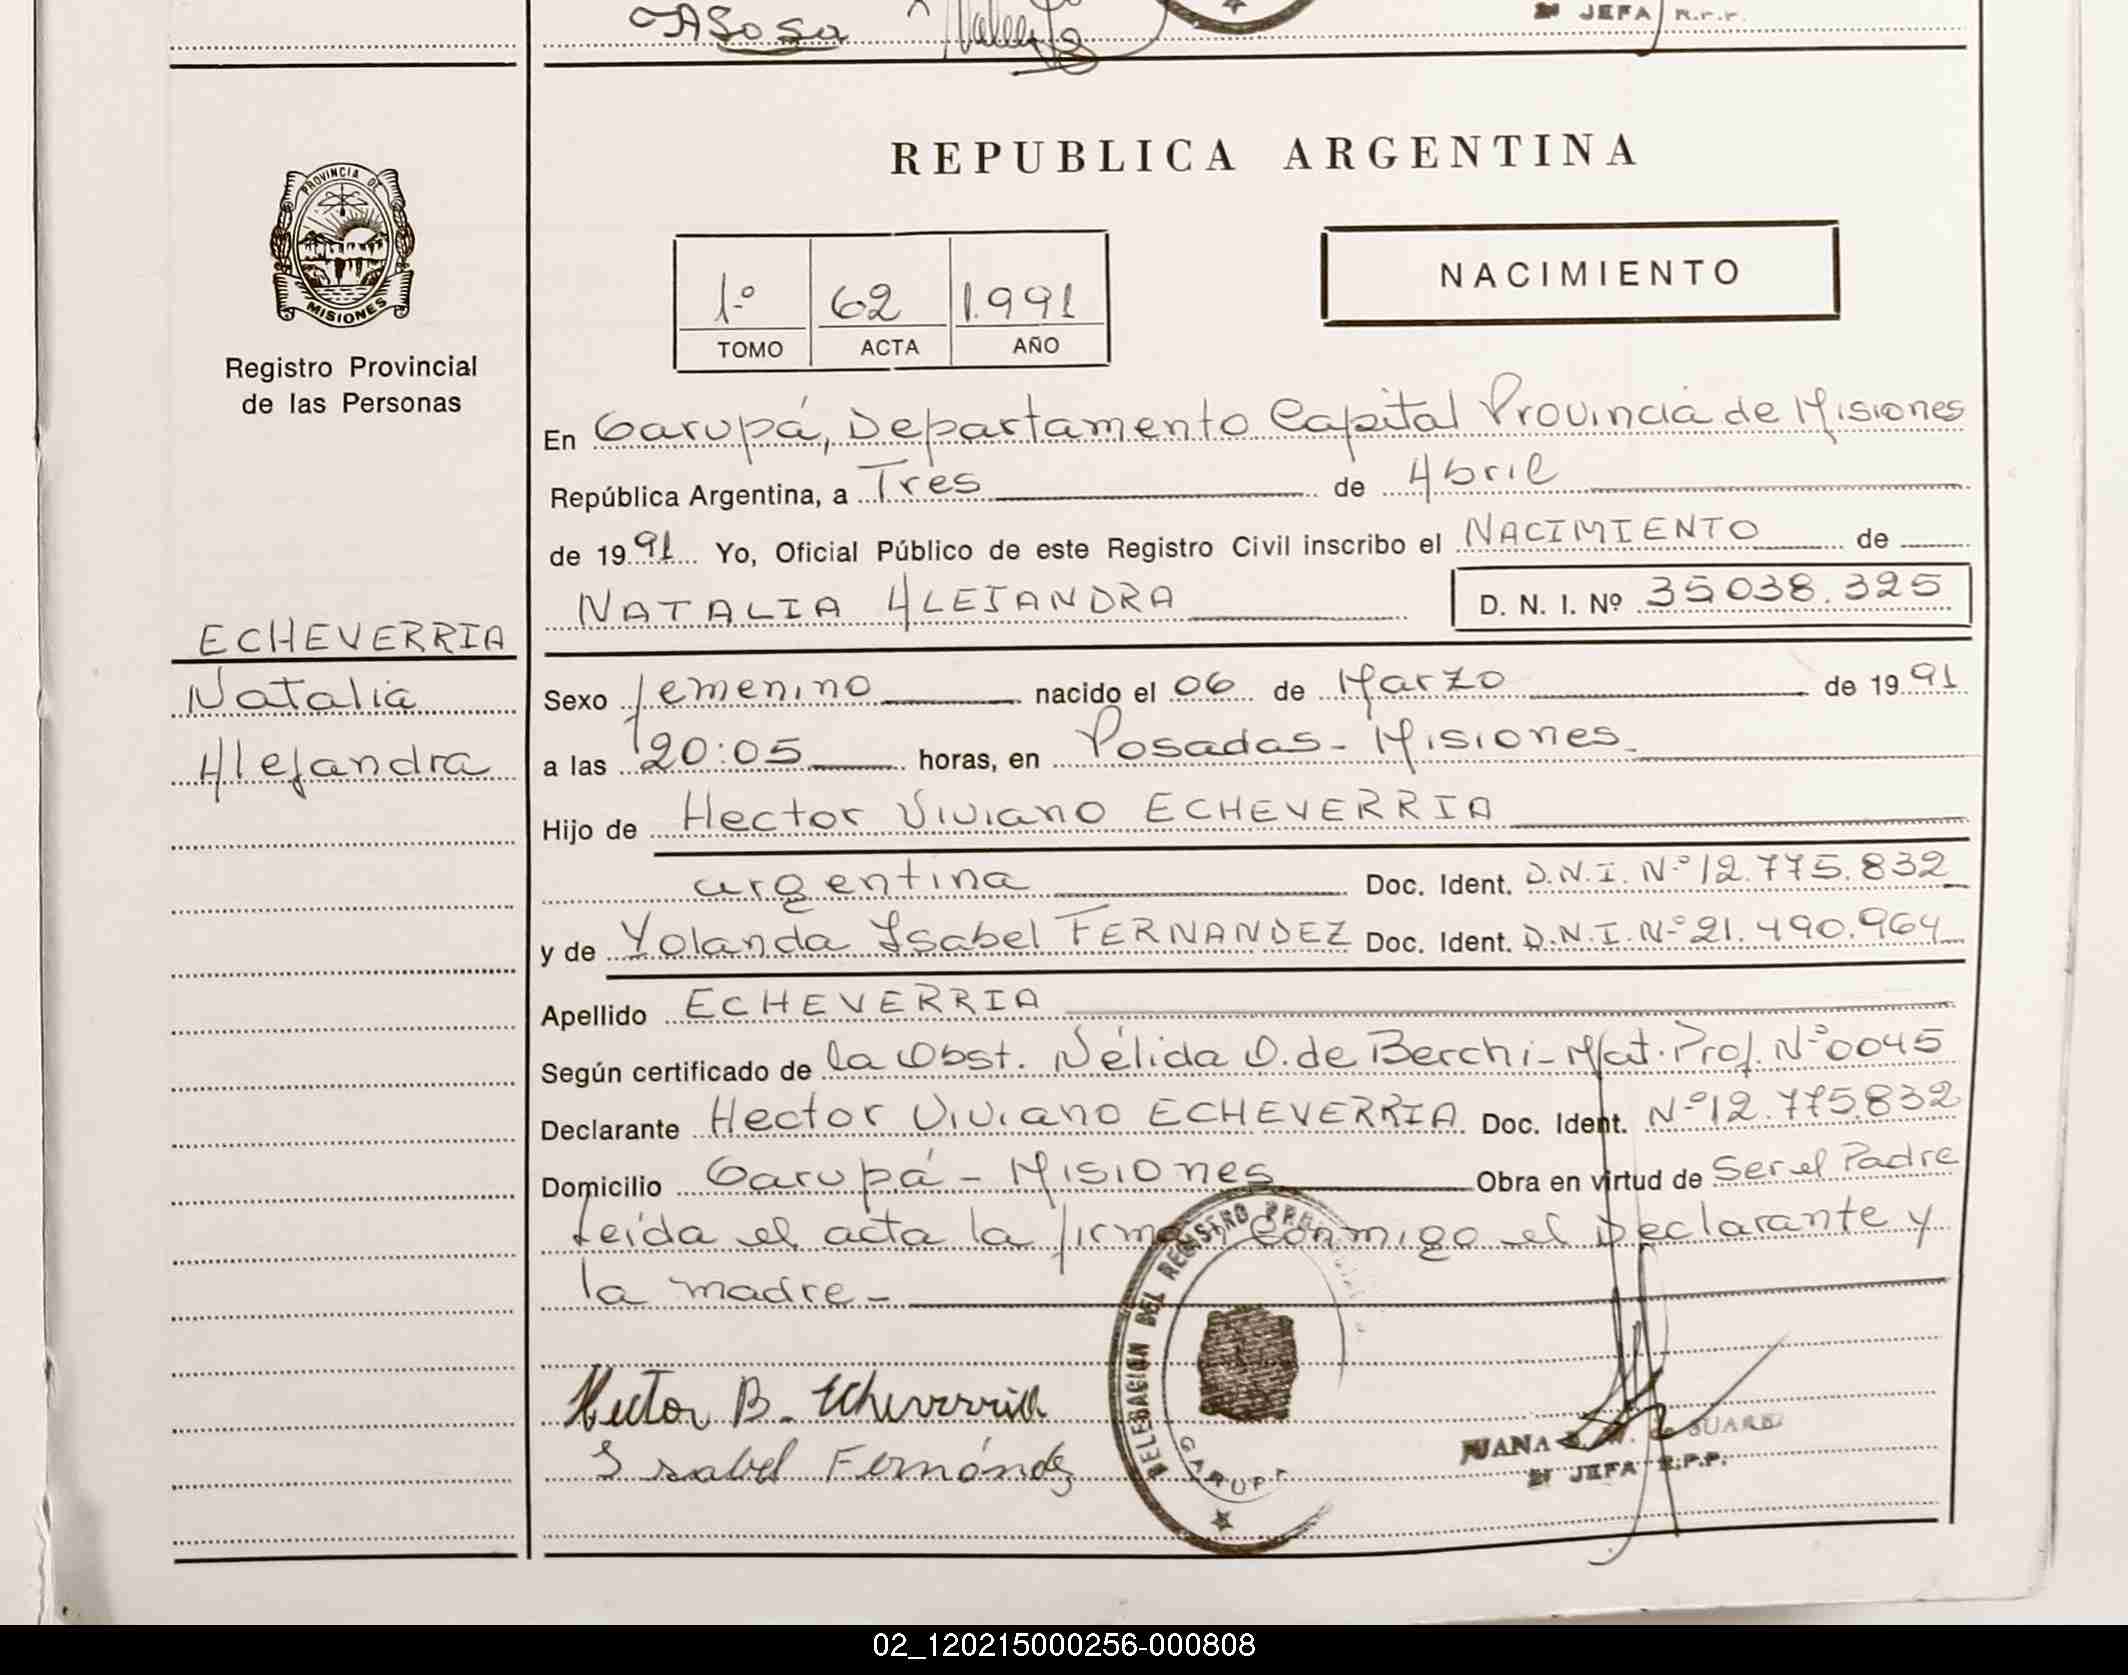 ASosa
JEFA R.P.P.
PROVINCIA DE
MISIONES
Registro Provincial
de las Personas
ECHEVERRIA
Natalia
Alejandra
REPUBLICA ARGENTINA
1º 62 1.991
TOMO ACTA AÑO
NACIMIENTO
En Garupá, Departamento Capital Provincia de Misiones
República Argentina, a Tres de Abril
de 1991 Yo, Oficial Público de este Registro Civil inscribo el NACIMIENTO de
NATALIA ALEJANDRA D. N. I. Nº 35038.325
Sexo femenino nacido el 06 de Marzo de 1991
a las 20:05 horas, en Posadas - Misiones.
Hijo de Hector Viviano ECHEVERRIA
argentina Doc. Ident. D.N.I. Nº 12.775.832
y de Yolanda Ysabel FERNANDEZ Doc. Ident. D.N.I. Nº 21.490.964
Apellido ECHEVERRIA
Según certificado de la Obst. Nélida O. de Berchi - Mat. Prof. Nº 0045
Declarante Hector Viviano ECHEVERRIA Doc. Ident. Nº 12.775.832
Domicilio Garupá - Misiones Obra en virtud de Ser el Padre
Leída el acta la firman conmigo el Declarante y
la madre -
DELEGACION DEL REGISTRO PROVINCIAL
GARUPA
Hector B. Echeverria
Isabel Fernández
JUANA SUAREZ
JEFA R.P.P.
02_120215000256-000808